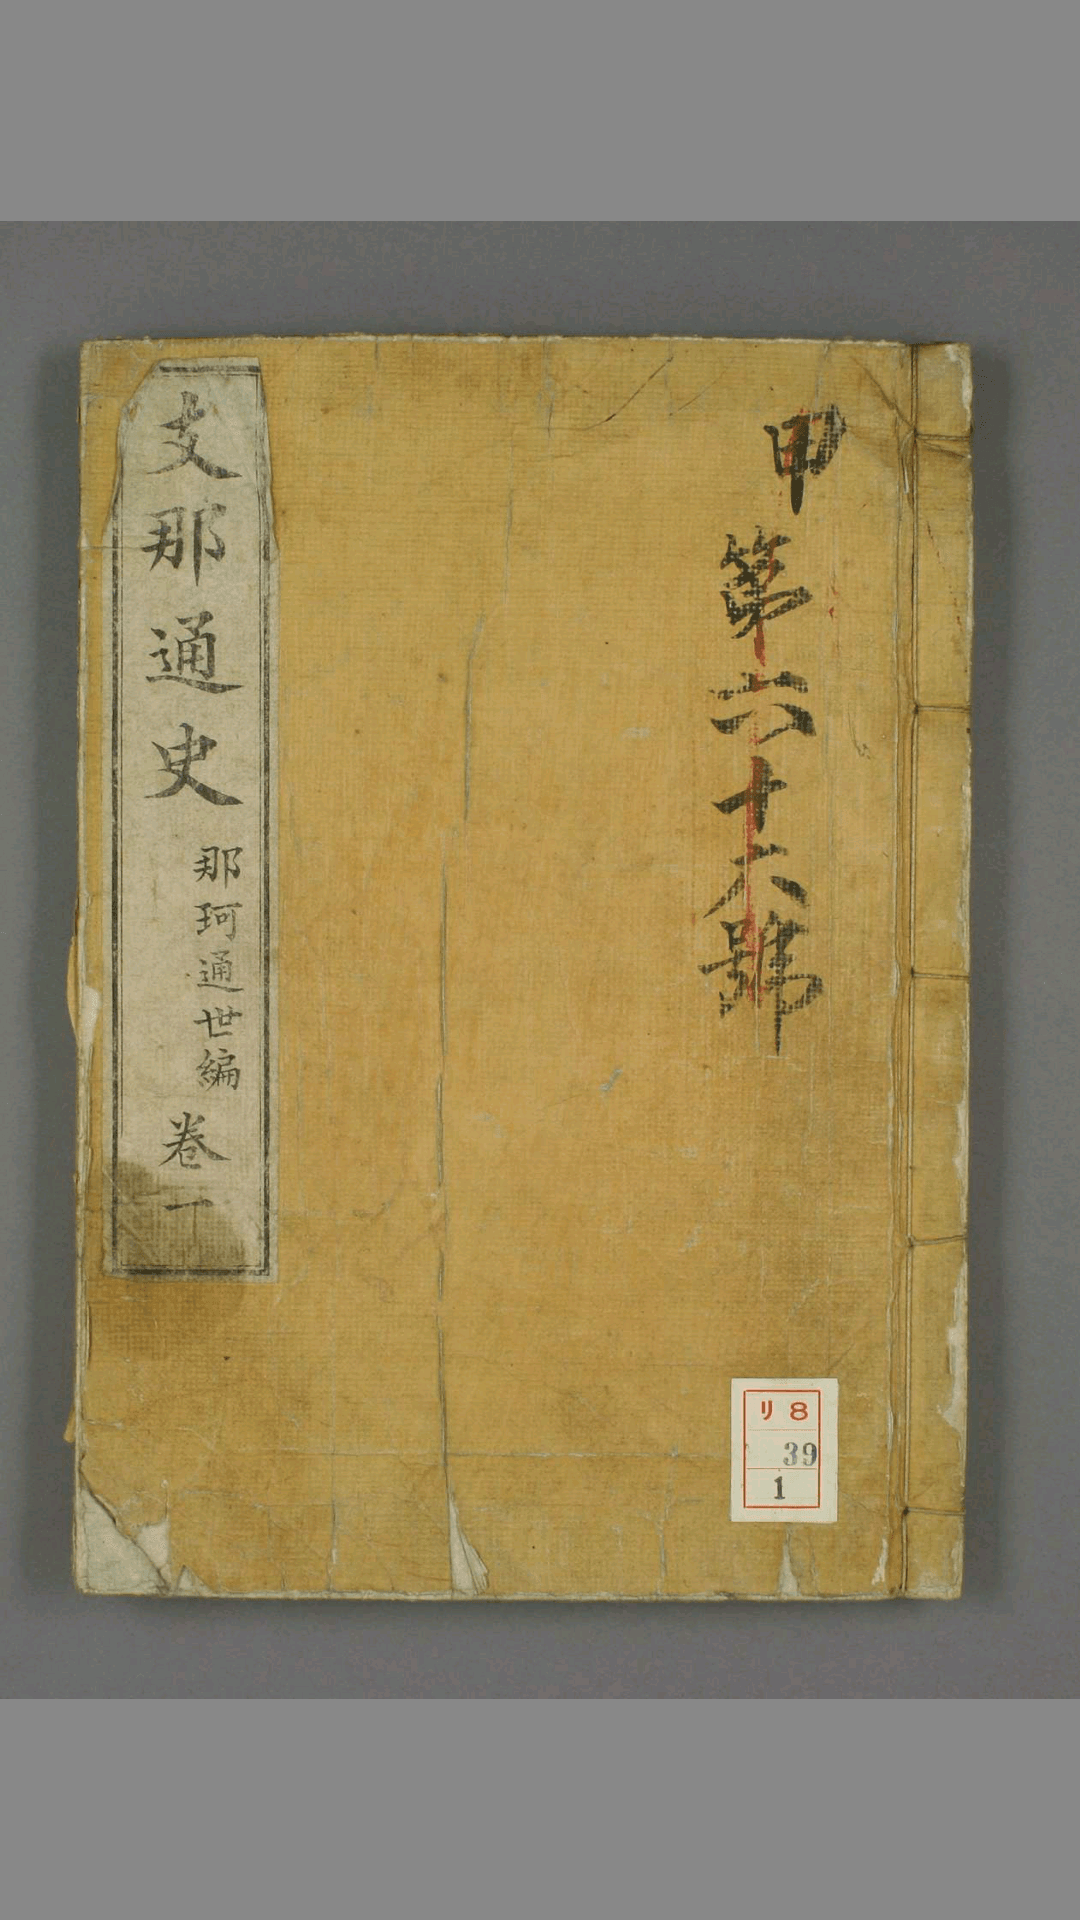 甲
第六十六號
支那通史
那珂通世編
巻一
リ8
39
1